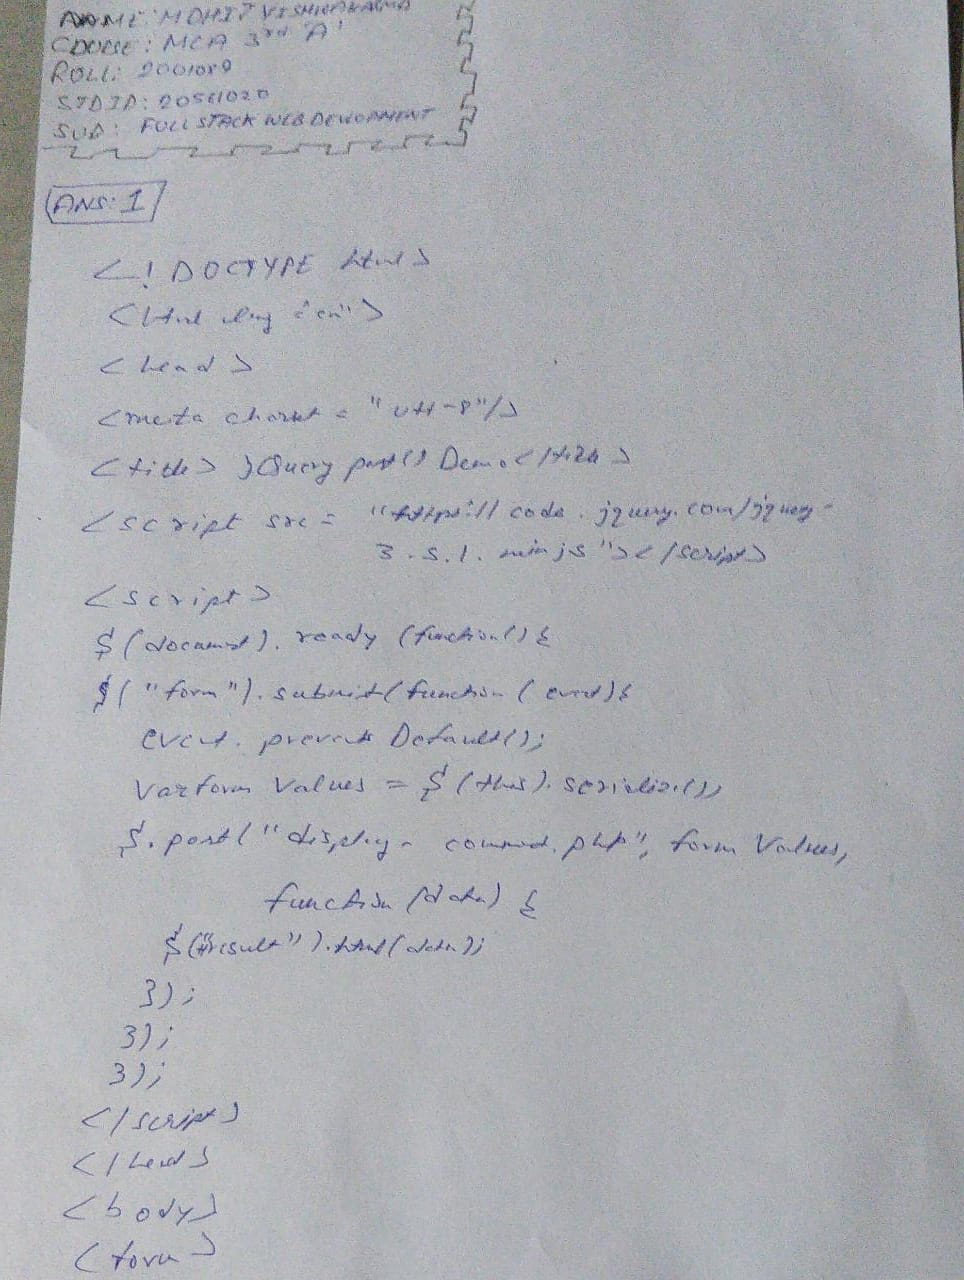 NAME: MOHIT VISHWAKARMA
COURSE: MCA 3rd 'A'
ROLL: 2001089
STDID: 20561020
SUB: FULL STACK WEB DEVELOPMENT
ANS: 1
<! DOCTYPE html>
<html lang = "en">
<head>
<meta charset = "utf-8"/>
<title> jQuery post() Demo</title>
<script src = "https://code.jquery.com/jquery-
3.5.1.min.js"></script>
<script>
$(document).ready (function(){
$("form").submit(function (event){
event. prevent Default();
var form Values = $(this). serialize();
$. post("display- comment.php", form Values,
function (data) {
$("#result").html(data);
});
});
});
</script>
</head>
<body>
<form>